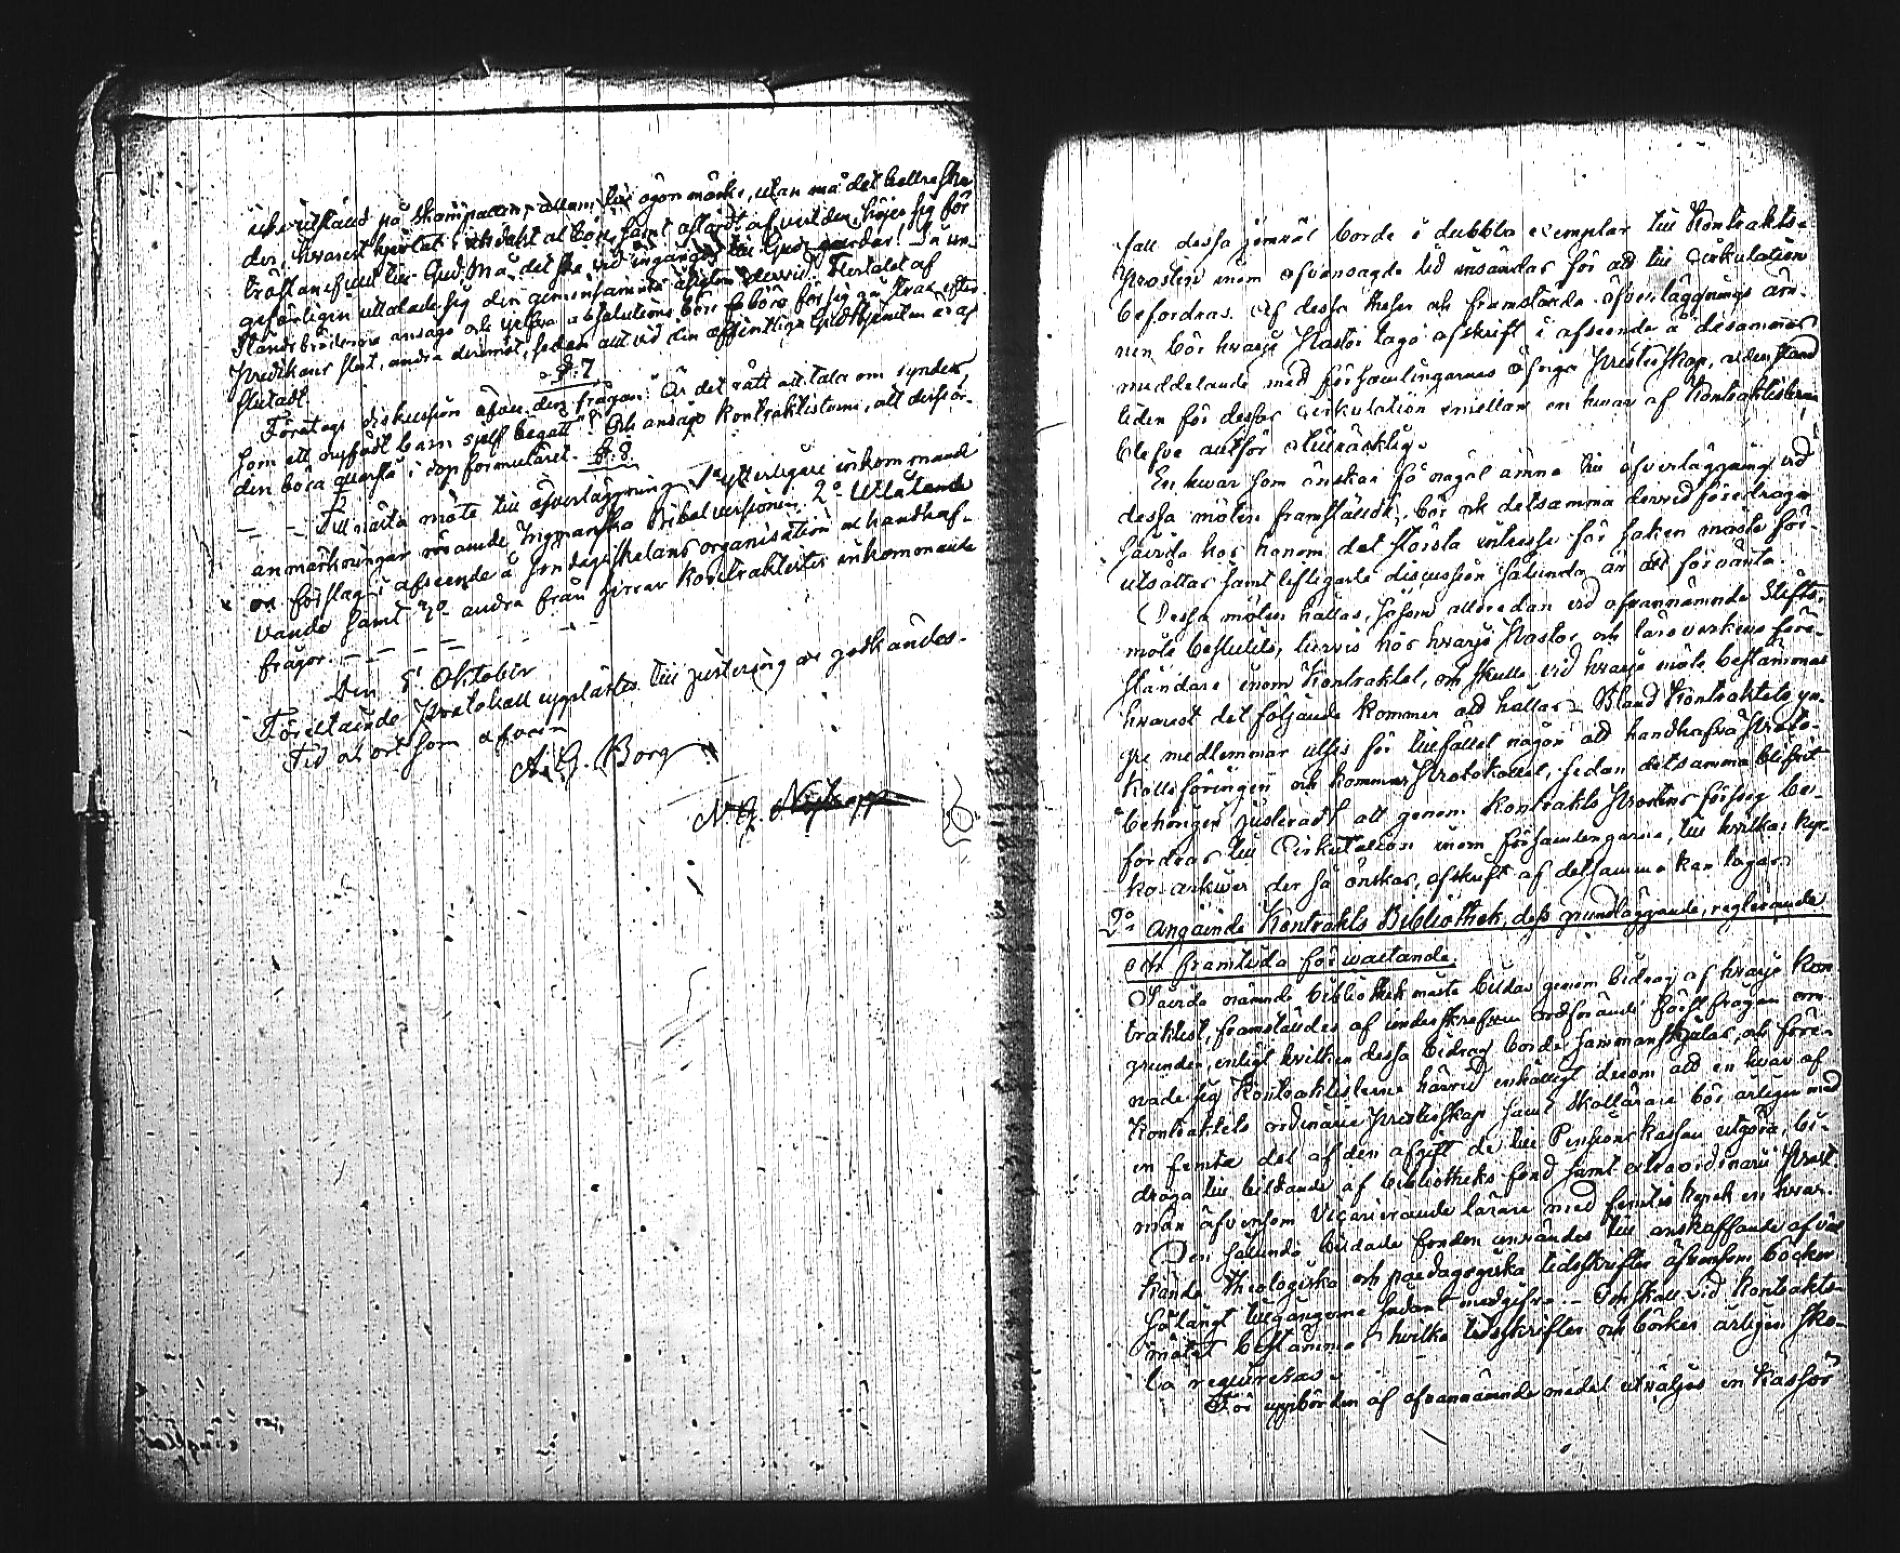 icke utstånd på skampallen, allom till ögonmärke, utan må det hellre ske
der, hvarest hjertat, i andakt
tröstan ifrån Gud. Må det ske vid ingången till Guds gårdar! Så un-
gefärligen uttalade sig den gemensamma åsigten dervid. Flertalet af
Ståndsbröderne ansågo och sjelfva absolutions böra försiggå strax efter
Predikans slut, andra deremot, sedan allt vid den offentliga Gudstjensten är af
slutadt.
§. 7
Företogs diskussion öfver den frågan: Är det rätt att tala om synder
som ett nyfödt barn sjelf begått? Och ansågo Kontraktisterne, att dessa or-
den böra qvarstå i dopformuläret.
§. 8.
Till nästa möte till öfverläggning 1o ytterligare inkommande
anmärkningar rörande Ingmanska Bibelversionen, 2o Utlåtande
och förslag i afseende å Söndagsskolans organisation och handhaf-
vande samt 3o andra från herrar Kontraktister inkommande
frågor.
Den 5 Oktober
Förestående Protokoll upplästes till justering och godkändes.
Tid och ort som ofvan
A. G. Borg
N. A.
fall dessa jemväl borde i dubbla exemplar till Kontrakts-
Prosten inom ofvansagde tid insändas för att till Cirkulation
befordras. Af dessa theser och framstälda öfverläggnings äm-
nen bör hvarje Pastor taga afskrift i afseende å desammas
meddelande med församlingarnas öfriga Presterskap, alldenstund
tiden för dessas Cirkulation emellan en hvar af Kontraktisterne
blefve alltför otillräcklig.
En hvar som önskar få något ämne till öfverläggning vid
dessa möten framstäldt, bör ock detsamma dervid föredraga
såvida hos honom det största intresse för saken måste för-
utsättas samt lifligaste discussion sålunda är att förvänta.
Dessa möten hållas, såsom allaredan vid ofvannämnde Stifts-
möte beslutits, turvis hos hvarje Pastor och läroverkens före-
ståndare inom Kontraktet, och skulle vid hvarje möte bestämmas
hvarest det följande kommer att hållas. Bland Kontraktets yn-
gre medlemmar utses för tillfället någon att handhafva Proto-
kollsföringen och kommer Protokollet, sedan detsamma blifvit
behörigen justeradt att genom Kontrakts Prostens försorg be-
fordras till Cirkulation inom församlingarne, till hvilkas kyr-
ko-arkiver der så önskas, afskrift af detsamma kan tagas.
2o Angående Kontrakts Bibliothek, dess grundläggande, reglerande
och framtida förvaltande.
Såvida nämnde bibliothek måste bildas genom bidrag af hvarje Kon
traktist, framstäldes af undeskrefven ordförande först frågan om
grunden, enligt hvilken dessa bidrag borde sammanskjutas, och före-
nade sig Kontraktisterne härvid enhälligt derom att en hvar af
Kontraktets ordinarie Presterskap samt Skollärare bör årligen med
en femte del af den afgift de till Pensions kassan utgöra, bi-
draga till bildande af bibliotheks fond samt extraordinarie Prest
män äfvensom Vicarierande lärare med femtio kopek en hvar.
Den sålunda bildade fonden användes till anskaffande af väl
kända theologiska och paedagogiska tidskrifter äfvensom böcker
så långt tillgångarne sådant medgifva. Och skall vid Kontrakts-
mötet bestämmas hvilka tidskrifter och böcker årligen sko-
la requireras.
För uppbörden af ofvannämnde medel utväljes en Kassör